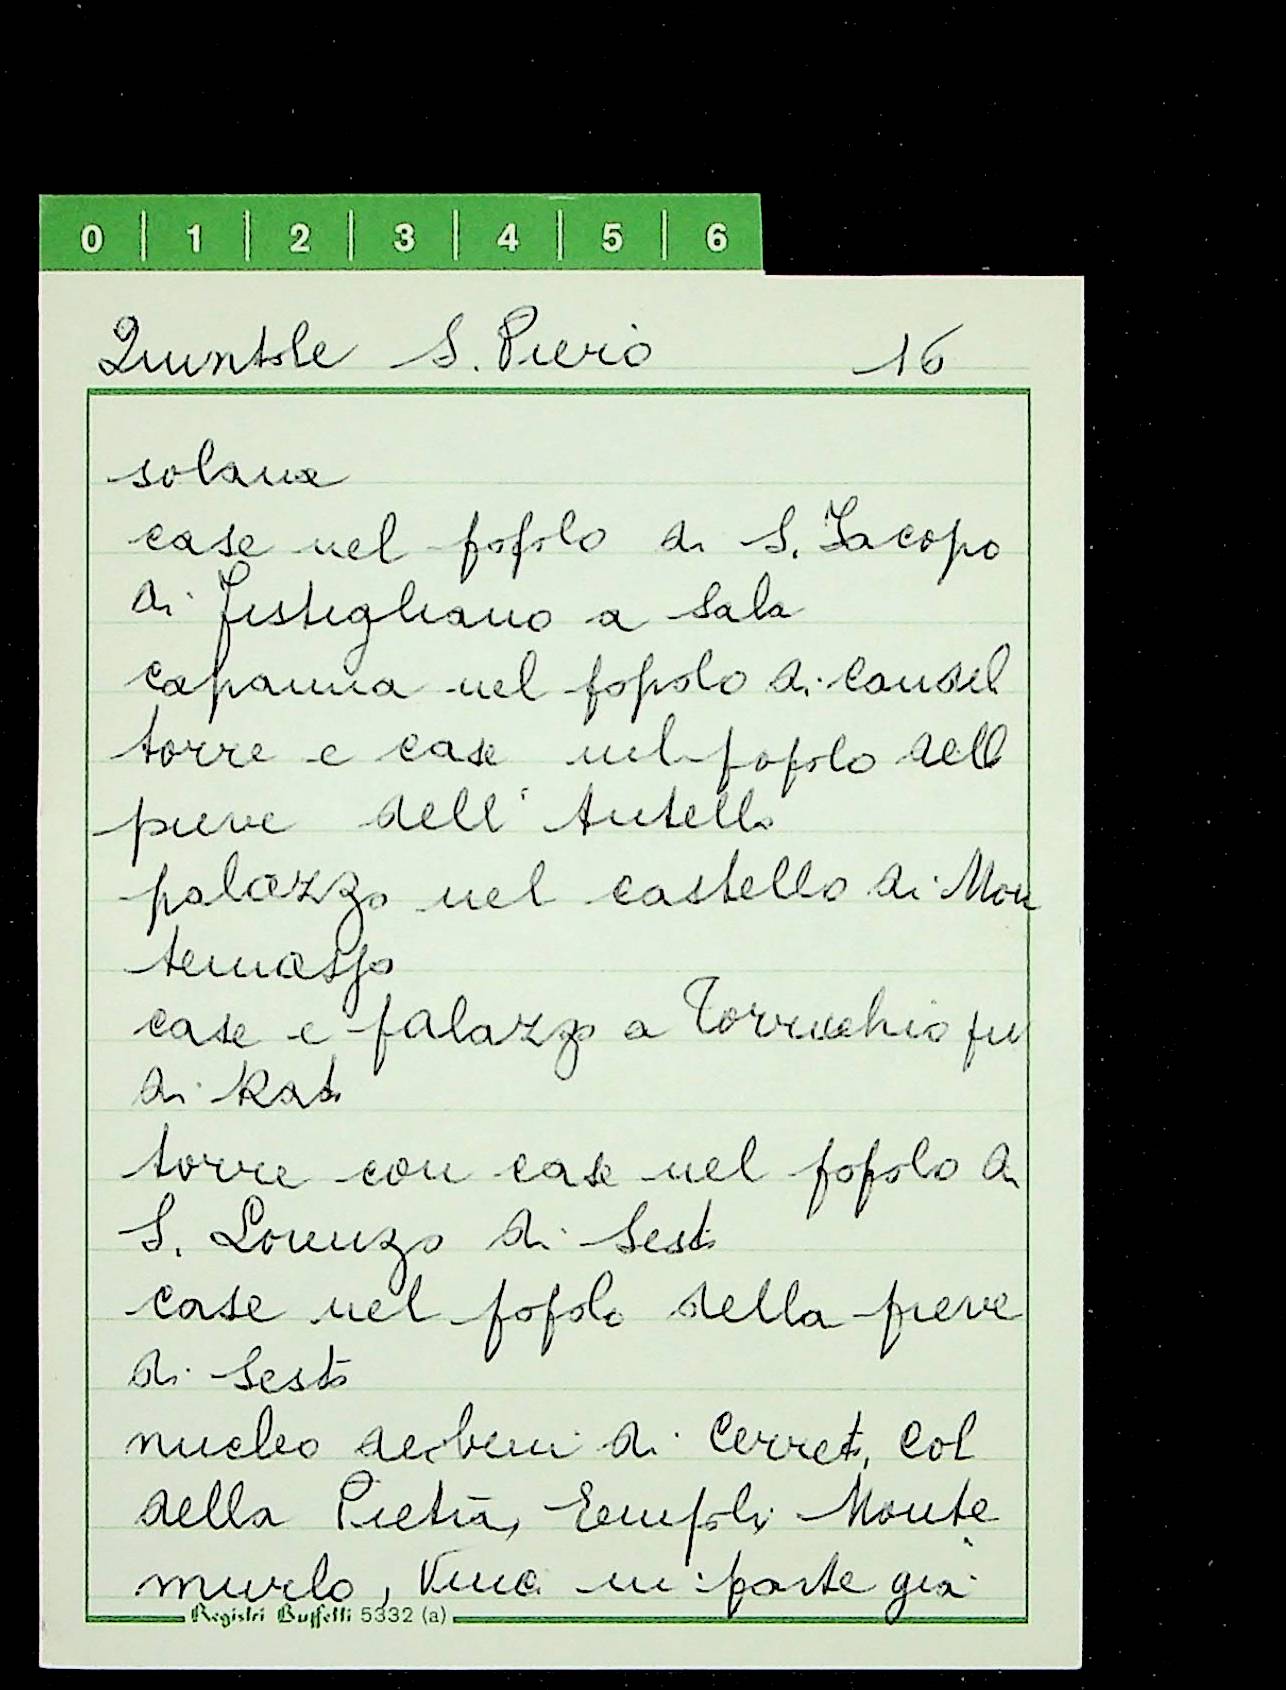 0 1 2 3 4 5 6
Quintole S. Piero 16
solana
case nel popolo di S. Jacopo
di Festigliano a Sala
capanna nel popolo di Candel
torre e case nel popolo dell
pieve dell' Antella
palazzo nel castello di Mon
temasso
case e palazzo a Torricchio fu
di Rat
torre con case nel popolo di
S. Lorenzo di Sesto
case nel popolo della pieve
di Sesto
nucleo dei beni di Cerreto, Col
della Pietra, Empoli, Monte
murlo, Vinci in parte già
Registri Buffetti 5332 (a)